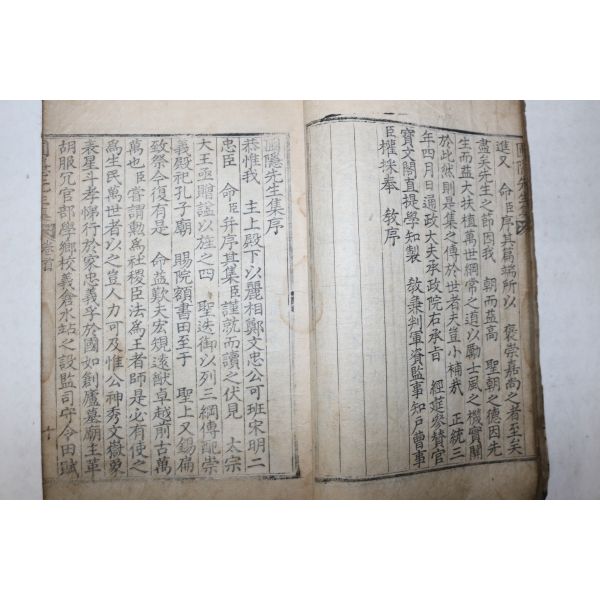 進又 命臣序其篇端所以 褒崇嘉尚之者至矣
盡矣先生之節因我 朝而益高 聖朝之德因先
生而益大扶植萬世綱常之道以勵士風之機實關
於此然則是集之傳於世者夫豈小補哉 正統三
年四月日通政大夫承政院右承旨 經筵參贊官
寶文閣直提學知製 敎兼判軍資監事知戶曹事
臣權採奉 敎序
圃隱先生集序
恭惟我 主上殿下以麗相鄭文忠公可班宋明二
忠臣 命臣弁序其集臣謹就而讀之伏見 太宗
大王亟贈謚以旌之四 聖迭御以列三綱傳配崇
義殿祀孔子廟 賜院額書田至于 聖上又錫扁
致祭今復有是 命益歎夫宏規遠猷卓越前古萬
萬也臣嘗謂勲為社稷臣法為王者師是必有使之
為生民萬世者以之豈人力可及惟公神秀文嶽象
表星斗孝悌行於家忠義孚於國如創廬墓廟主革
胡服冗官部學鄉校義倉水站之設監司守令田賦
卷首